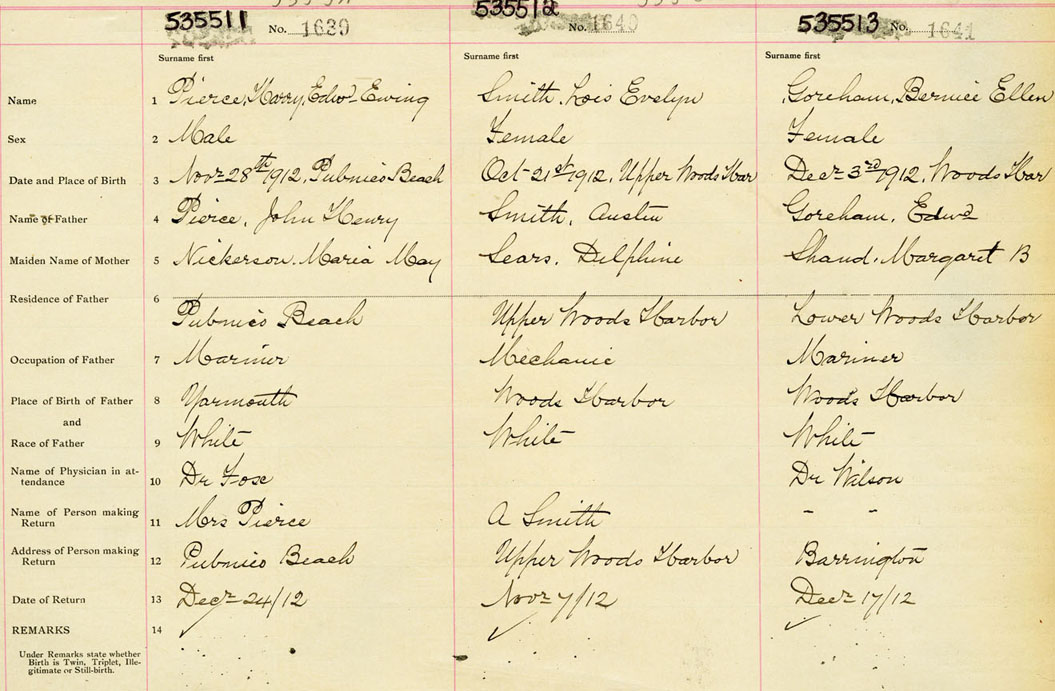 535511 No. 1639 535512 No. 1640 535513 No. 1641
Surname first Surname first Surname first
Name 1 Pierce, Harry, Edwd Ewing Smith, Lois Evelyn Goreham, Bernice Ellen
Sex 2 Male Female Female
Date and Place of Birth 3 Novr 28th 1912, Pubnico Beach Oct 21st 1912, Upper Woods Har Decr 3rd 1912, Woods Har
Name of Father 4 Pierce, John Henry Smith, Austin Goreham, Edwd
Maiden Name of Mother 5 Nickerson, Maria May Sears, Delphine Shand, Margaret B
Residence of Father 6 Pubnico Beach Upper Woods Harbor Lower Woods Harbor
Occupation of Father 7 Mariner Mechanic Mariner
Place of Birth of Father 8 Yarmouth Woods Harbor Woods Harbor
and
Race of Father 9 White White White
Name of Physician in at-
tendance 10 Dr Fox Dr Wilson
Name of Person making
Return 11 Mrs Pierce A Smith - -
Address of Person making
Return 12 Pubnico Beach Upper Woods Harbor Barrington
Date of Return 13 Decr 24/12 Novr 7/12 Decr 17/12
REMARKS 14
Under Remarks state whether
Birth is Twin, Triplet, Ille-
gitimate or Still-birth.